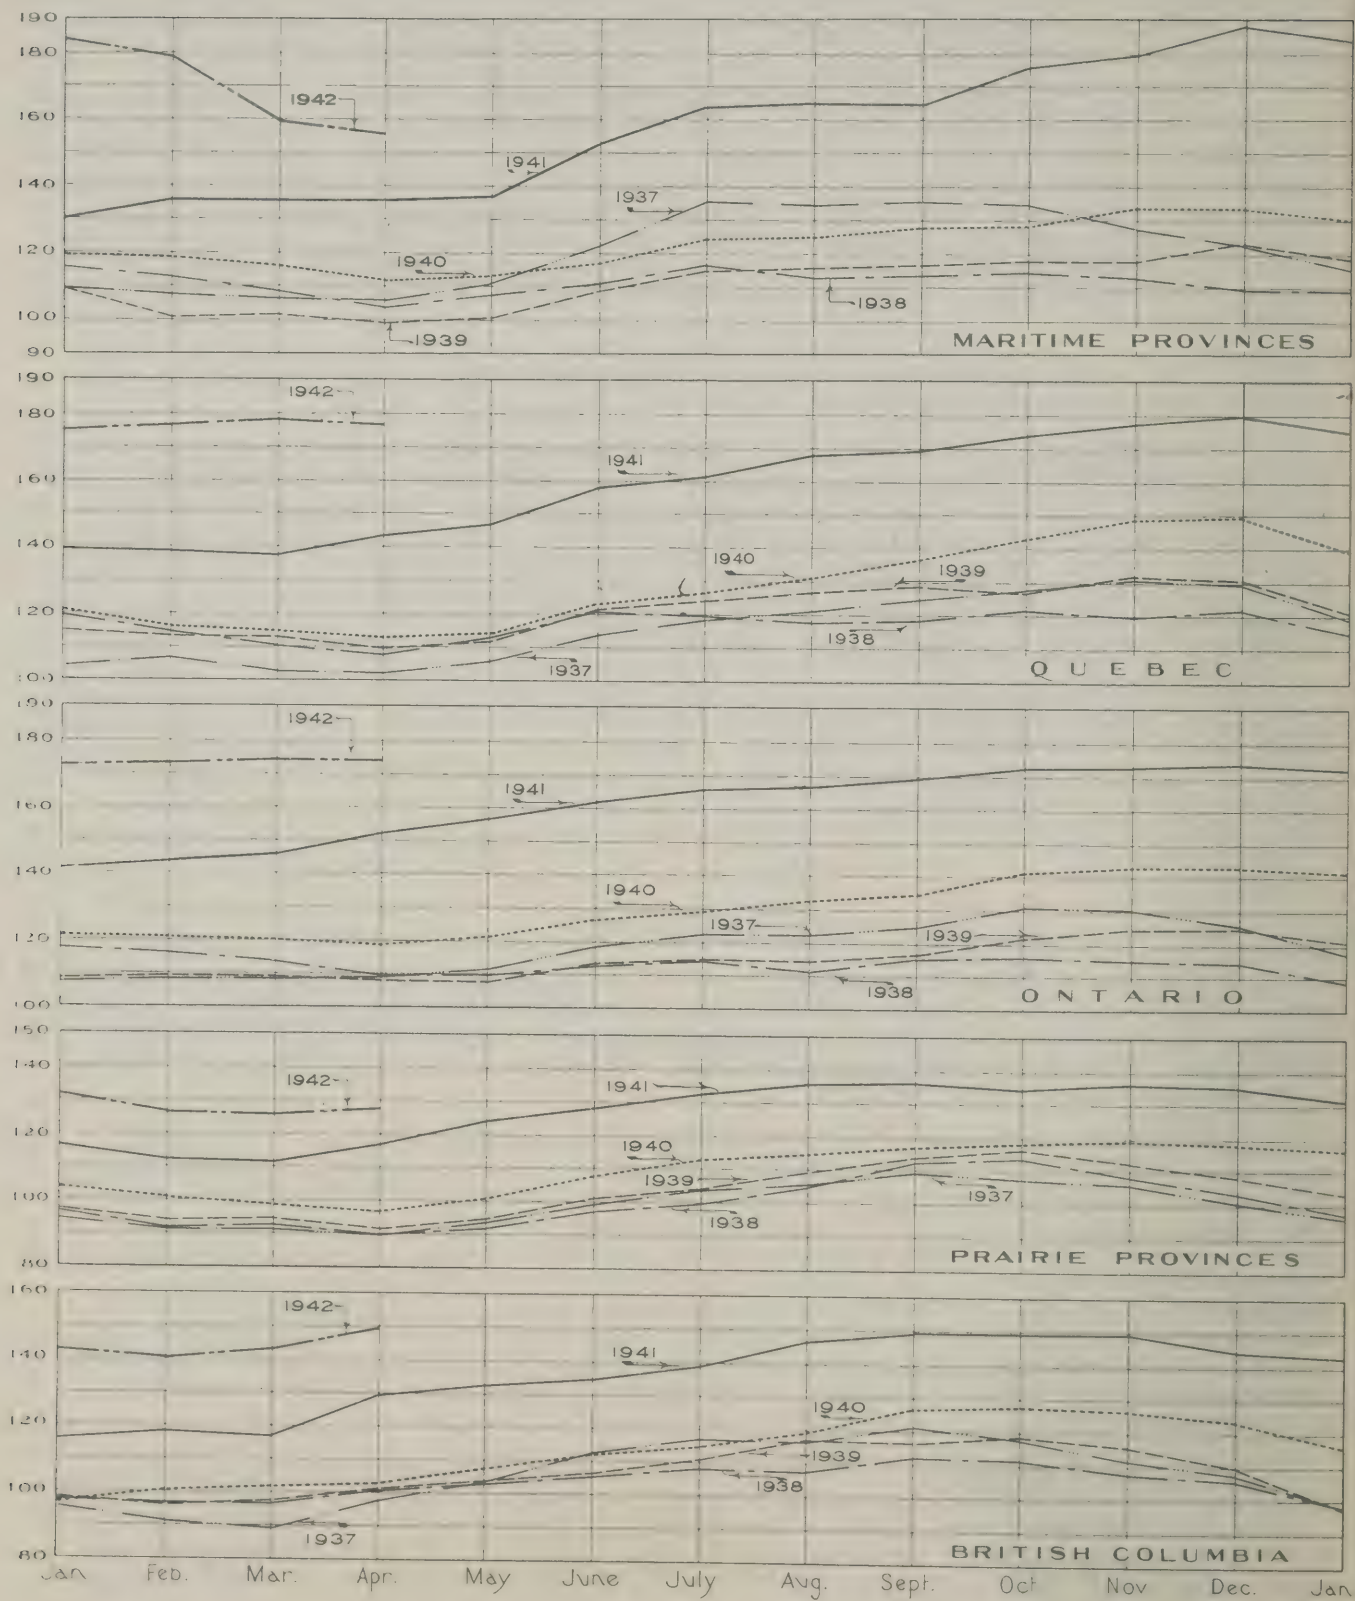 190
180
160
140
120
100
90
1942
1941
1937
1940
1938
1939
MARITIME PROVINCES
190
180
160
140
120
100
1942
1941
1940
1939
1938
1937
QUEBEC
190
180
160
140
120
100
1942
1941
1940
1937
1939
1938
ONTARIO
150
140
120
100
80
1942
1941
1940
1939
1937
1938
PRAIRIE PROVINCES
160
140
120
100
80
1942
1941
1940
1939
1938
1937
BRITISH COLUMBIA
Jan Feb. Mar. Apr. May June July Aug. Sept. Oct Nov Dec. Jan